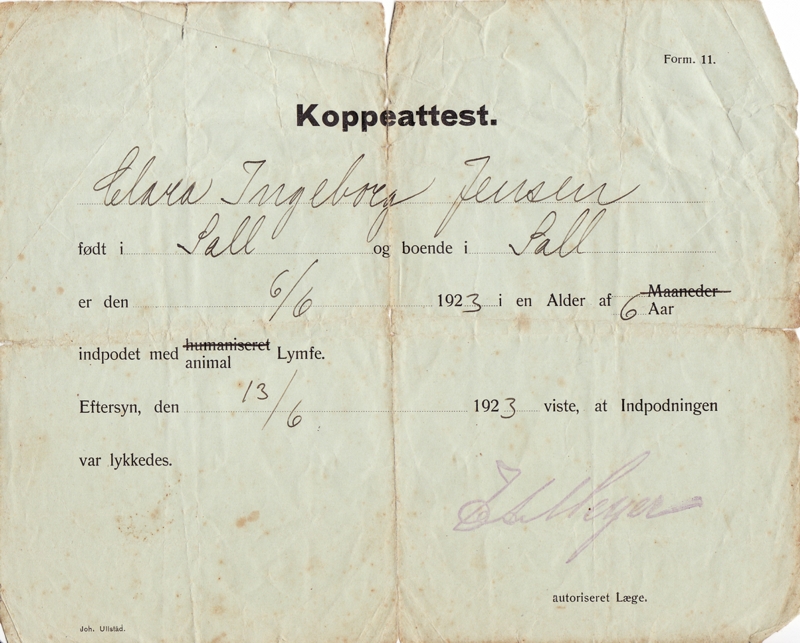 Form. 11.
Koppeattest.
Clara Ingeborg Jensen
født i Sall og boende i Sall
er den 6/6 1923 i en Alder af 6 Maaneder Aar
indpodet med humaniseret animal Lymfe.
Eftersyn, den 13/6 1923 viste, at Indpodningen
var lykkedes.
Meyer
autoriseret Læge.
Joh. Ullstad.